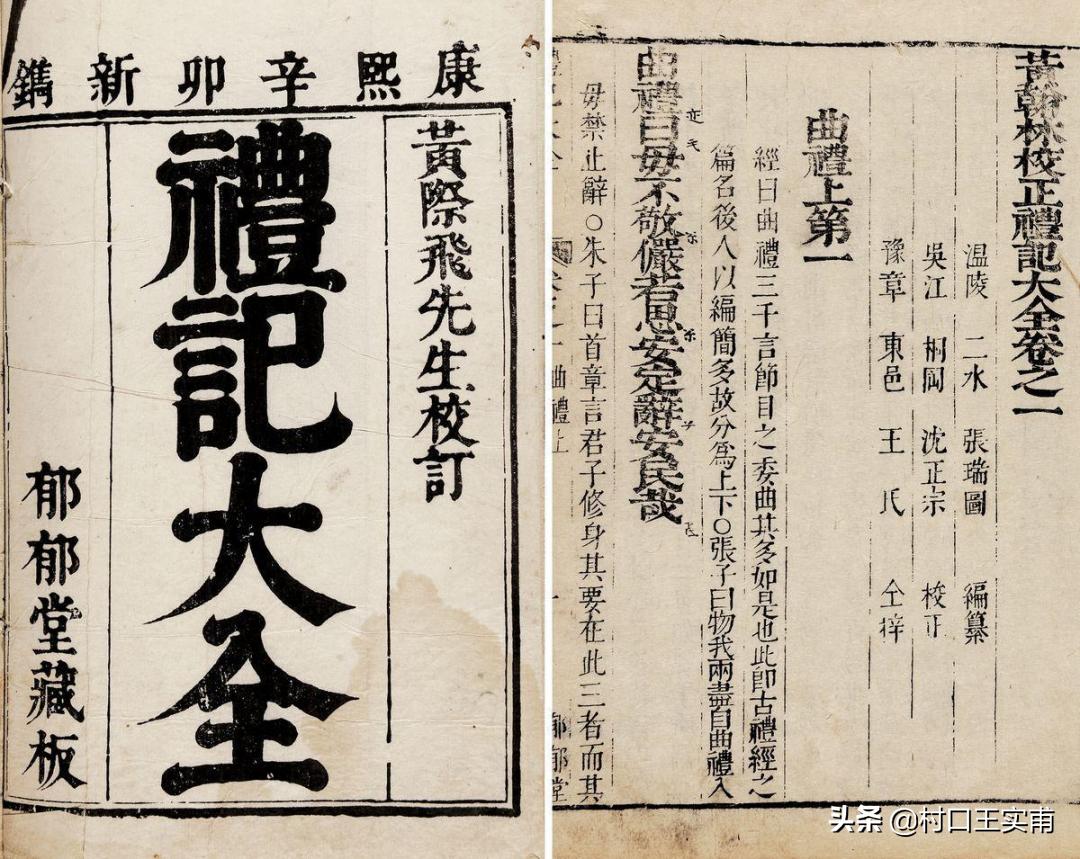 康熙辛卯新鐫
黃際飛先生校訂
禮記大全
郁郁堂藏板
黃翰林校正禮記大全卷之一
溫陵 二水 張瑞圖 編纂
吳江 桐岡 沈正宗 校正
豫章 東邑 王氏 仝梓
曲禮上第一
經曰曲禮三千言節目之委曲其多如是也此即古禮經之
篇名後人以編簡多故分爲上下○張子曰物我兩盡自曲禮入
曲禮曰毋不敬儼若思安定辭安民哉
毋禁止辭○朱子曰首章言君子修身其要在此三者而其
曲禮上
郁郁堂
头条 @村口王实甫